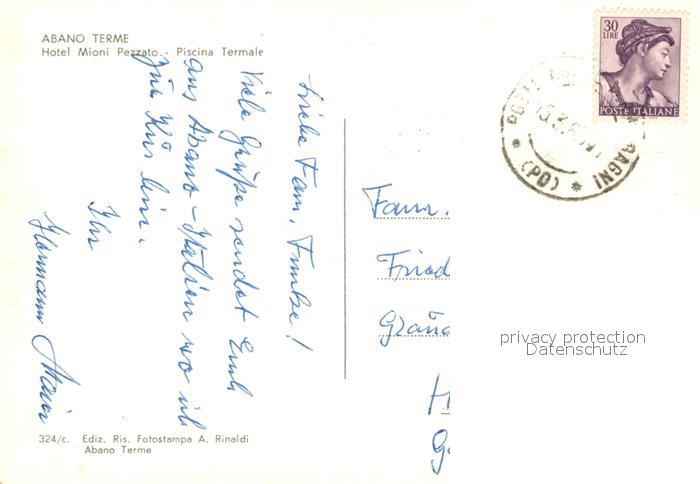 ABANO TERME
Hotel Mioni Pezzato - Piscina Termale
Liebe Fam.
Viele Grüße sendet Euch
aus Abano-Italien wo ich
zur Kur bin.
Ihr
Hermann Maier
324/c. Ediz. Ris. Fotostampa A. Rinaldi
Abano Terme
30
LIRE
POSTE ITALIANE
BAGNI
* (PD) *
Fam.
Fried
Gräna
H
G
privacy protection
Datenschutz